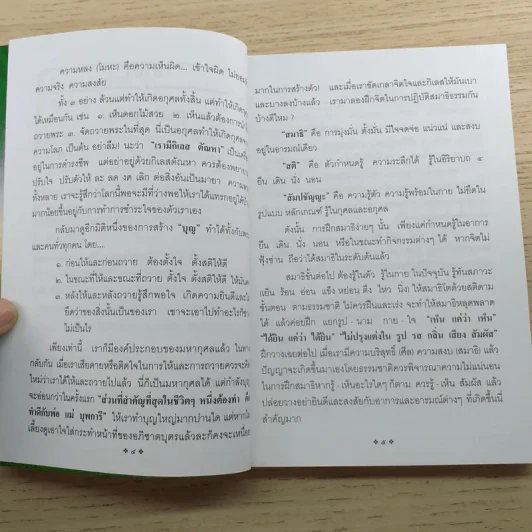 ความหลง (โมหะ) คือความเห็นผิด... เข้าใจผิด ไม่ยอม
ความจริง ความสงสัย
ทั้ง ๓ อย่าง ล้วนแต่ทำให้เกิดอกุศลทั้งสิ้น แต่ทำให้เกิด
ได้เหมือนกัน เช่น ๑. เห็นดอกไม้สวย ๒. เห็นแล้วต้องการนำ
ถวายพระ ๓. จัดถวายพระในที่สุด นี่เป็นอกุศลทำให้เกิดกุศล
ความโลภ เป็นต้น อย่าลืม! นะว่า "เรามีกิเลส ตัณหา" เป็นเครื่อง
อยู่ในการดำรงชีพ แต่อย่าอยู่ด้วยกิเลสตัณหา ควรต้องพยายาม
ปรับใจ ปรับตัวให้ ละ ลด งด เลิก ต่อสิ่งอันเป็นมายา
ทั้งหลาย เราจะรู้สึกว่าโลกนี้พอจะมีที่ว่างพอให้เราได้แทรกอยู่ได้
มากน้อยขึ้นอยู่กับการทำการชำระใจของตัวเราเอง
กลับมาดูอีกมิติหนึ่งของการสร้าง "บุญ" ทำได้ทั้งกับพระ
และคนทั่วทุกคน โดย....
๑. ก่อนให้และก่อนถวาย ต้องตั้งใจ ตั้งสติให้ดี
๒. ในขณะที่ให้และขณะที่ถวาย ตั้งใจ ตั้งสติให้ดี ให้มั่นคง
๓. หลังให้และหลังถวายรู้สึกพอใจ เกิดความยินดีและไม่
ยึดว่าของสิ่งนั้นเป็นของเรา เขาจะเอาไปทำอะไรก็
ไม่เป็นไร
เพียงเท่านี้ เราก็มีองค์ประกอบของมหากุศลแล้ว ในทาง
กลับกัน เมื่อเราเสียดายหรือติดใจในการให้และการถวายควรจะคิด
ใหม่ว่าเราได้ให้และถวายไปแล้ว นี่ก็เป็นมหากุศลได้ แต่กำลังบุญ
จะอ่อนกว่าในครั้งแรก "ส่วนที่สำคัญที่สุดในชีวิตๆ หนึ่งต้องทำ
ทำดีกับพ่อ แม่ บุพการี" ให้เราทำบุญใหญ่มากปานใด แต่หากไม่
เลี้ยงดูเอาใจใส่กระทำหน้าที่ของอภิชาตบุตรแล้วละก็คงจะเหนื่อย
❖ ๔ ❖
มากในการสร้างตัว! และเมื่อเราขัดเกลาจิตใจและกิเลสให้มันเบา
และบางลงบ้างแล้ว เรามาลองฝึกจิตในการปฏิบัติสมาธิธรรมกัน
บ้างดีไหม ?
"สมาธิ" คือ การมุ่งมั่น ตั้งมั่น มีใจจดจ่อ แน่วแน่ และสงบ
อยู่ในอารมณ์เดียว
"สติ" คือ ตัวกำหนดรู้ ความระลึกได้ รู้ในอิริยาบถ ๔
ยืน เดิน นั่ง นอน
"สัมปชัญญะ" คือ ความรู้ตัว ความรู้พร้อมในกาย ไม่ยึดใน
รูปแบบ หลักเกณฑ์ รู้ในกุศลและอกุศล
ดังนั้น การฝึกสมาธิง่ายๆ นั้น เพียงแค่กำหนดรู้ในอาการ
ยืน เดิน นั่ง นอน หรือในขณะทำกิจกรรมต่างๆ ได้ หากจิตไม่
ฟุ้งซ่าน ถือว่าได้สมาธิในระดับต้นแล้ว
สมาธิขั้นต่อไป ต้องรู้ในตัว รู้ในกาย ในปัจจุบัน รู้ทันสภาวะ
เย็น ร้อน อ่อน แข็ง หย่อน ตึง ไหว นิ่ง ให้สมาธิโตด้วยสติตาม
ขั้นตอน ตามธรรมชาติ ไม่ควรฝืนและเร่ง จะทำให้สมาธิหลุดพลาด
ได้ แล้วค่อยฝึก แยกรูป - นาม กาย - ใจ "เห็น แค่ว่า เห็น"
"ได้ยิน แค่ว่า ได้ยิน" "ไม่ปรุงแต่งใน รูป รส กลิ่น เสียง สัมผัส"
ฝึกวางเฉยต่อไป เมื่อเรามีความบริสุทธิ์ (ศีล) ความสงบ (สมาธิ) แล้ว
ปัญญาจะเกิดขึ้นมาเองโดยธรรมชาติควรพิจารณาความไม่แน่นอน
ในการฝึกสมาธิหากรู้ - เห็นอะไรใดๆ ก็ตาม ควรรู้ - เห็น สัมผัส แล้ว
ปล่อยวางอย่ายินดีและสงสัยกับอาการและอารมณ์ต่างๆ ที่เกิดขึ้นนี่
สำคัญมาก
❖ ๕ ❖